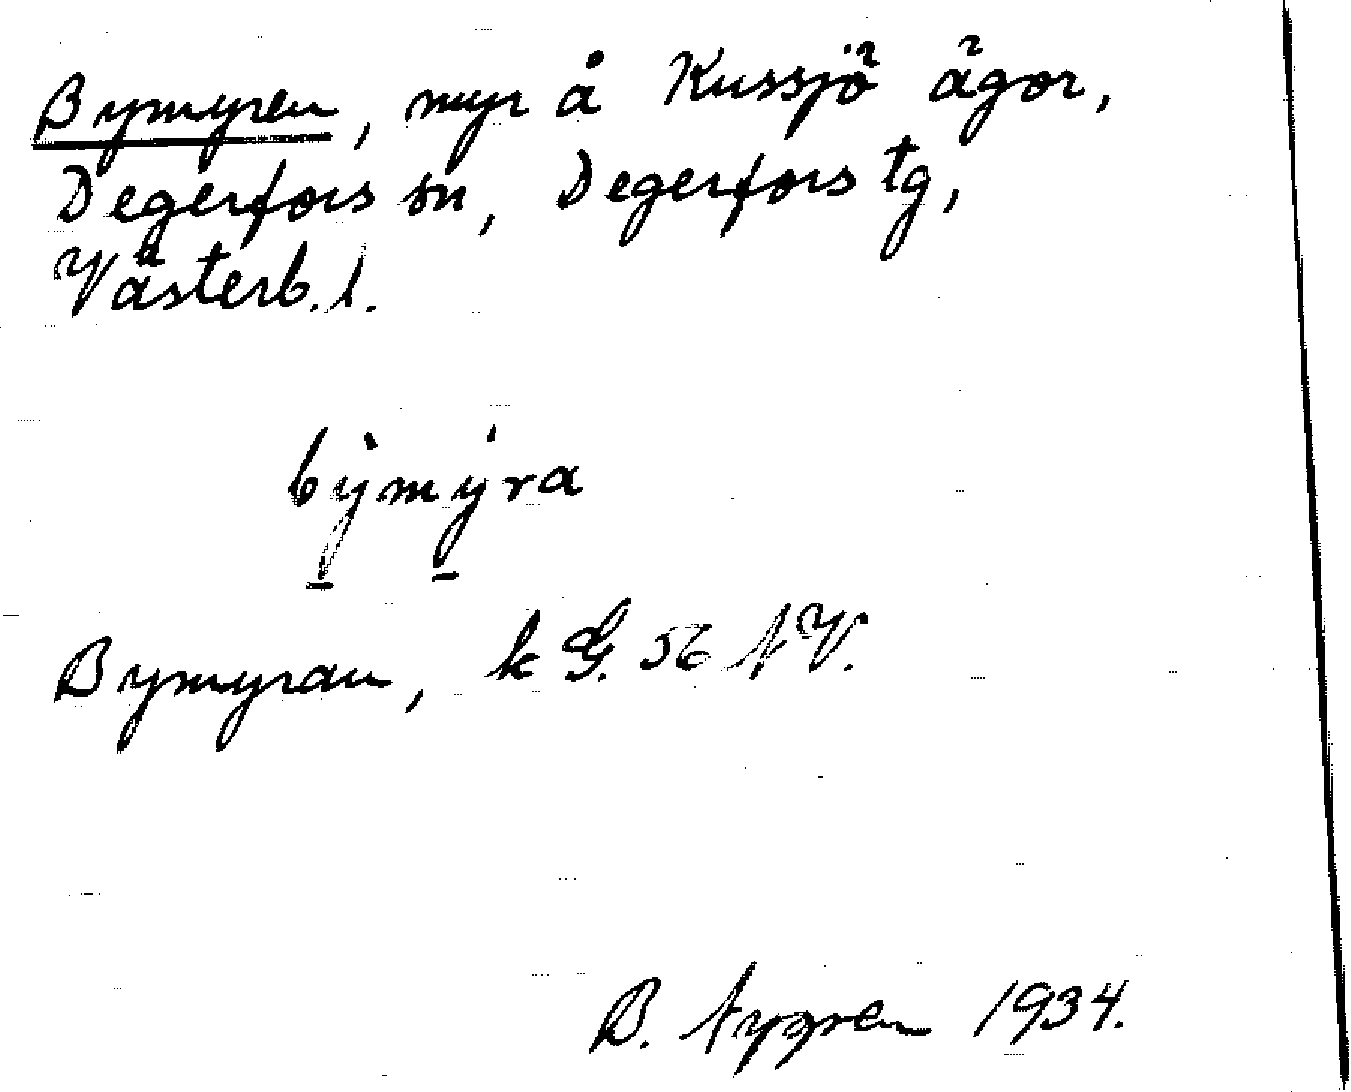 Bymyren, myr å Kussjö ägor,
Degerfors sn, Degerfors tg,
Västerb. l.
bỳmýra
Bymyran, k G. 56 NV.
B. Nygren 1934.